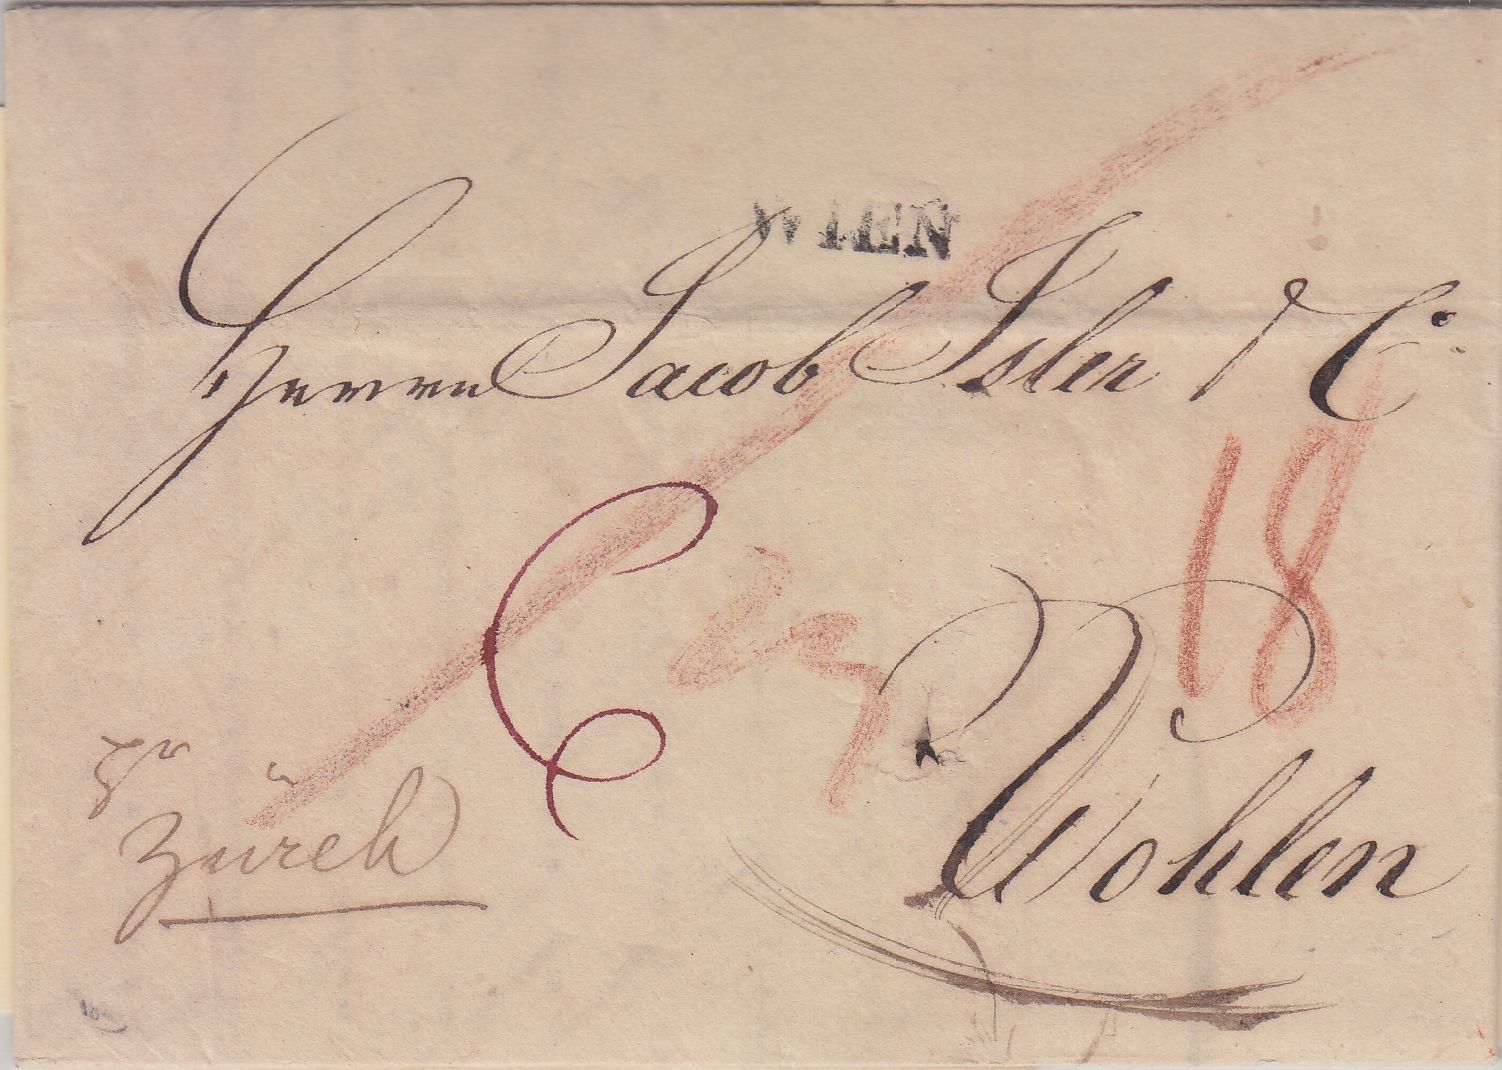 WIEN
Herrn Jacob Isler & C.
18
Wohlen
pr
Zürch